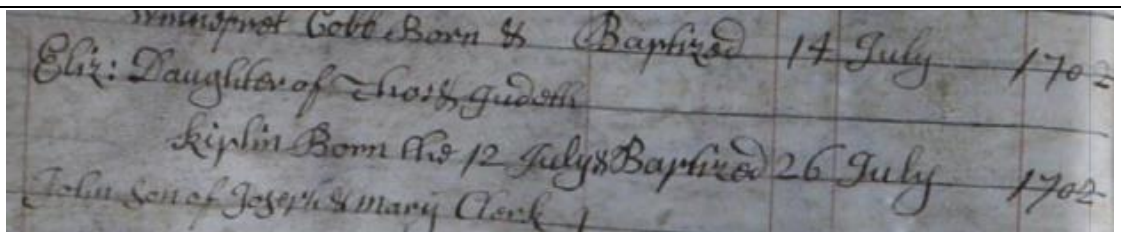 Winnifret Cobb Born & Baptized 14 July 1702
Eliz: Daughter of Tho: & Judeth
Kiplin Born the 12 July & Baptized 26 July 1702
John Son of Joseph & Mary Clerk